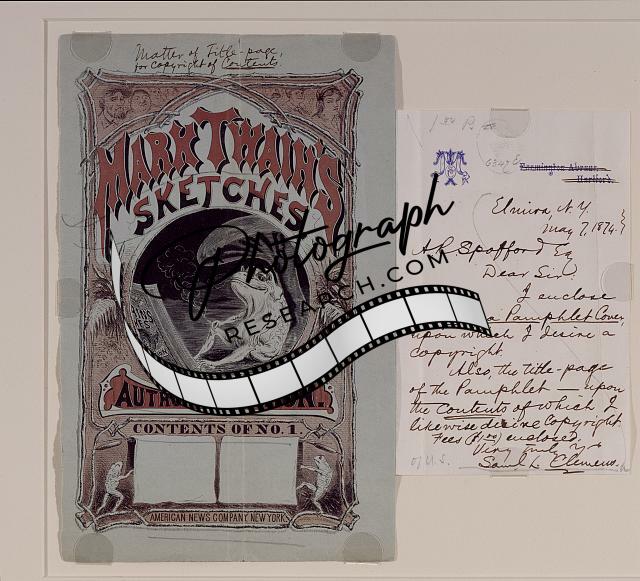 Matter of Title-page,
for copyright of Contents.
MARK TWAIN'S
SKETCHES
Photograph
RESEARCH.COM
AUTH
N.
CONTENTS OF No. 1
AMERICAN NEWS COMPANY NEW YORK
Farmington Avenue,
Hartford.
Elmira, N. Y.
May 7, 1874.
A. R. Spofford Esq
Dear Sir:
I enclose
a Pamphlet Cover,
upon which I desire a
copyright.
Also, the title-page
of the Pamphlet — upon
the Contents of which I
likewise desire copyright.
Fees enclosed.
Very Truly Yrs
Saml L. Clemens.